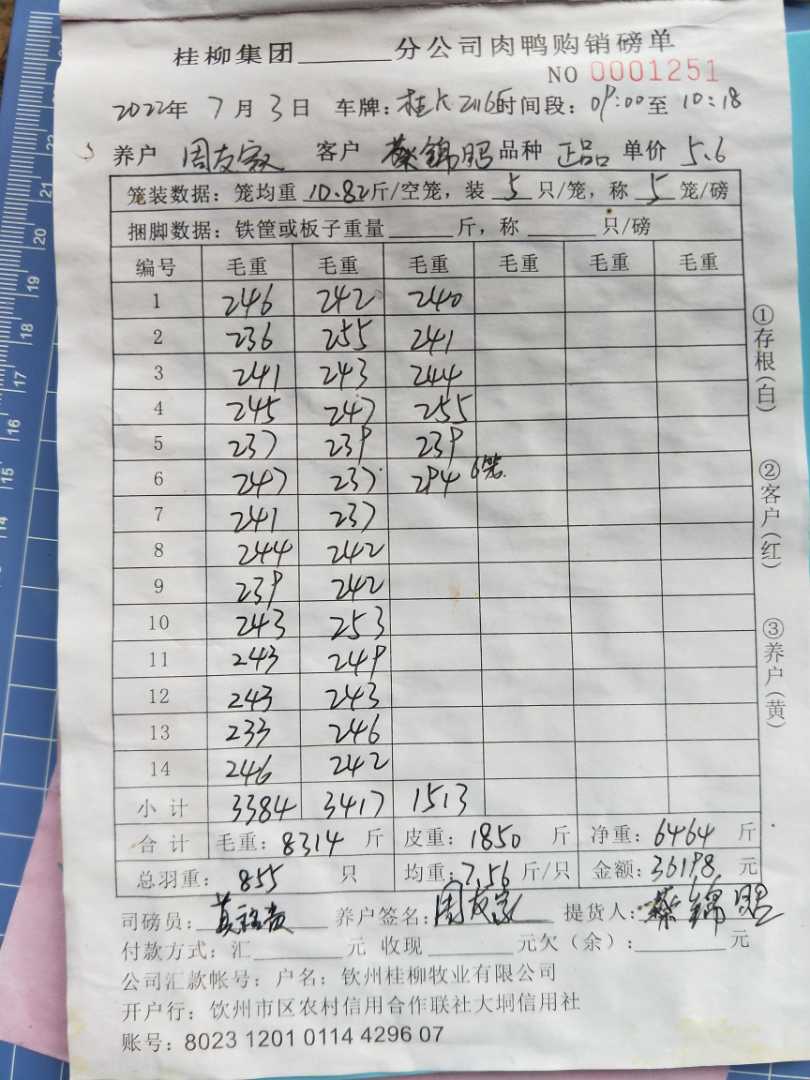 桂柳集团______分公司肉鸭购销磅单
NO 0001251
2022年 7月 3日 车牌:桂K 2116 时间段:09:00至 10:18
养户 周友家 客户 蔡锦昭 品种 正品 单价 5.6
笼装数据:笼均重 10.82斤/空笼,装 5 只/笼,称 5 笼/磅
捆脚数据:铁筐或板子重量______斤,称______只/磅
编号 毛重 毛重 毛重 毛重 毛重 毛重
1 246 242 240
2 236 255 241
3 241 243 244
4 245 247 255
5 237 239 239
6 247 237 294 6笼
7 241 237
8 244 242
9 239 242
10 243 253
11 243 249
12 243 243
13 233 246
14 246 242
小计 3384 3417 1513
合计 毛重:8314 斤 皮重:1850 斤 净重:6464 斤
总羽重:855 只 均重:7.56 斤/只 金额:36198 元
司磅员: 养户签名:周友家 提货人:蔡锦昭
付款方式:汇______元 收现______元欠(余):______元
公司汇款帐号:户名:钦州桂柳牧业有限公司
开户行:钦州市区农村信用合作联社大垌信用社
账号:8023 1201 0114 4296 07
①存根(白)
②客户(红)
③养户(黄)
14
15
16
17
18
19
20
21
22